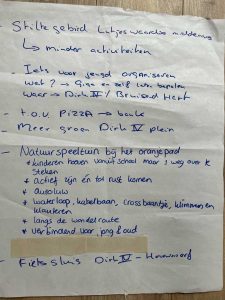 - Stiltegebied Lutjeswaardse middenweg
↳ minder activiteiten
- Iets voor jeugd organiseren
wat? → Gign en zelf laten bepalen
waar → Dirk IV / Bruisend Hert
- t.o.v. PIZZA → bank
- Meer groen Dirk IV plein
- Natuurspeeltuin bij het oranjepad
* kinderen hoeven vanuit school maar 1 weg over te
steken
* actief zijn én tot rust komen
* autoluw
* waterloop, kabelbaan, crossbaantje, klimmen en
klauteren
* langs de wandelroute
* verbindend voor jong & oud
- Fietssluis Dirk IV - Houwwerf